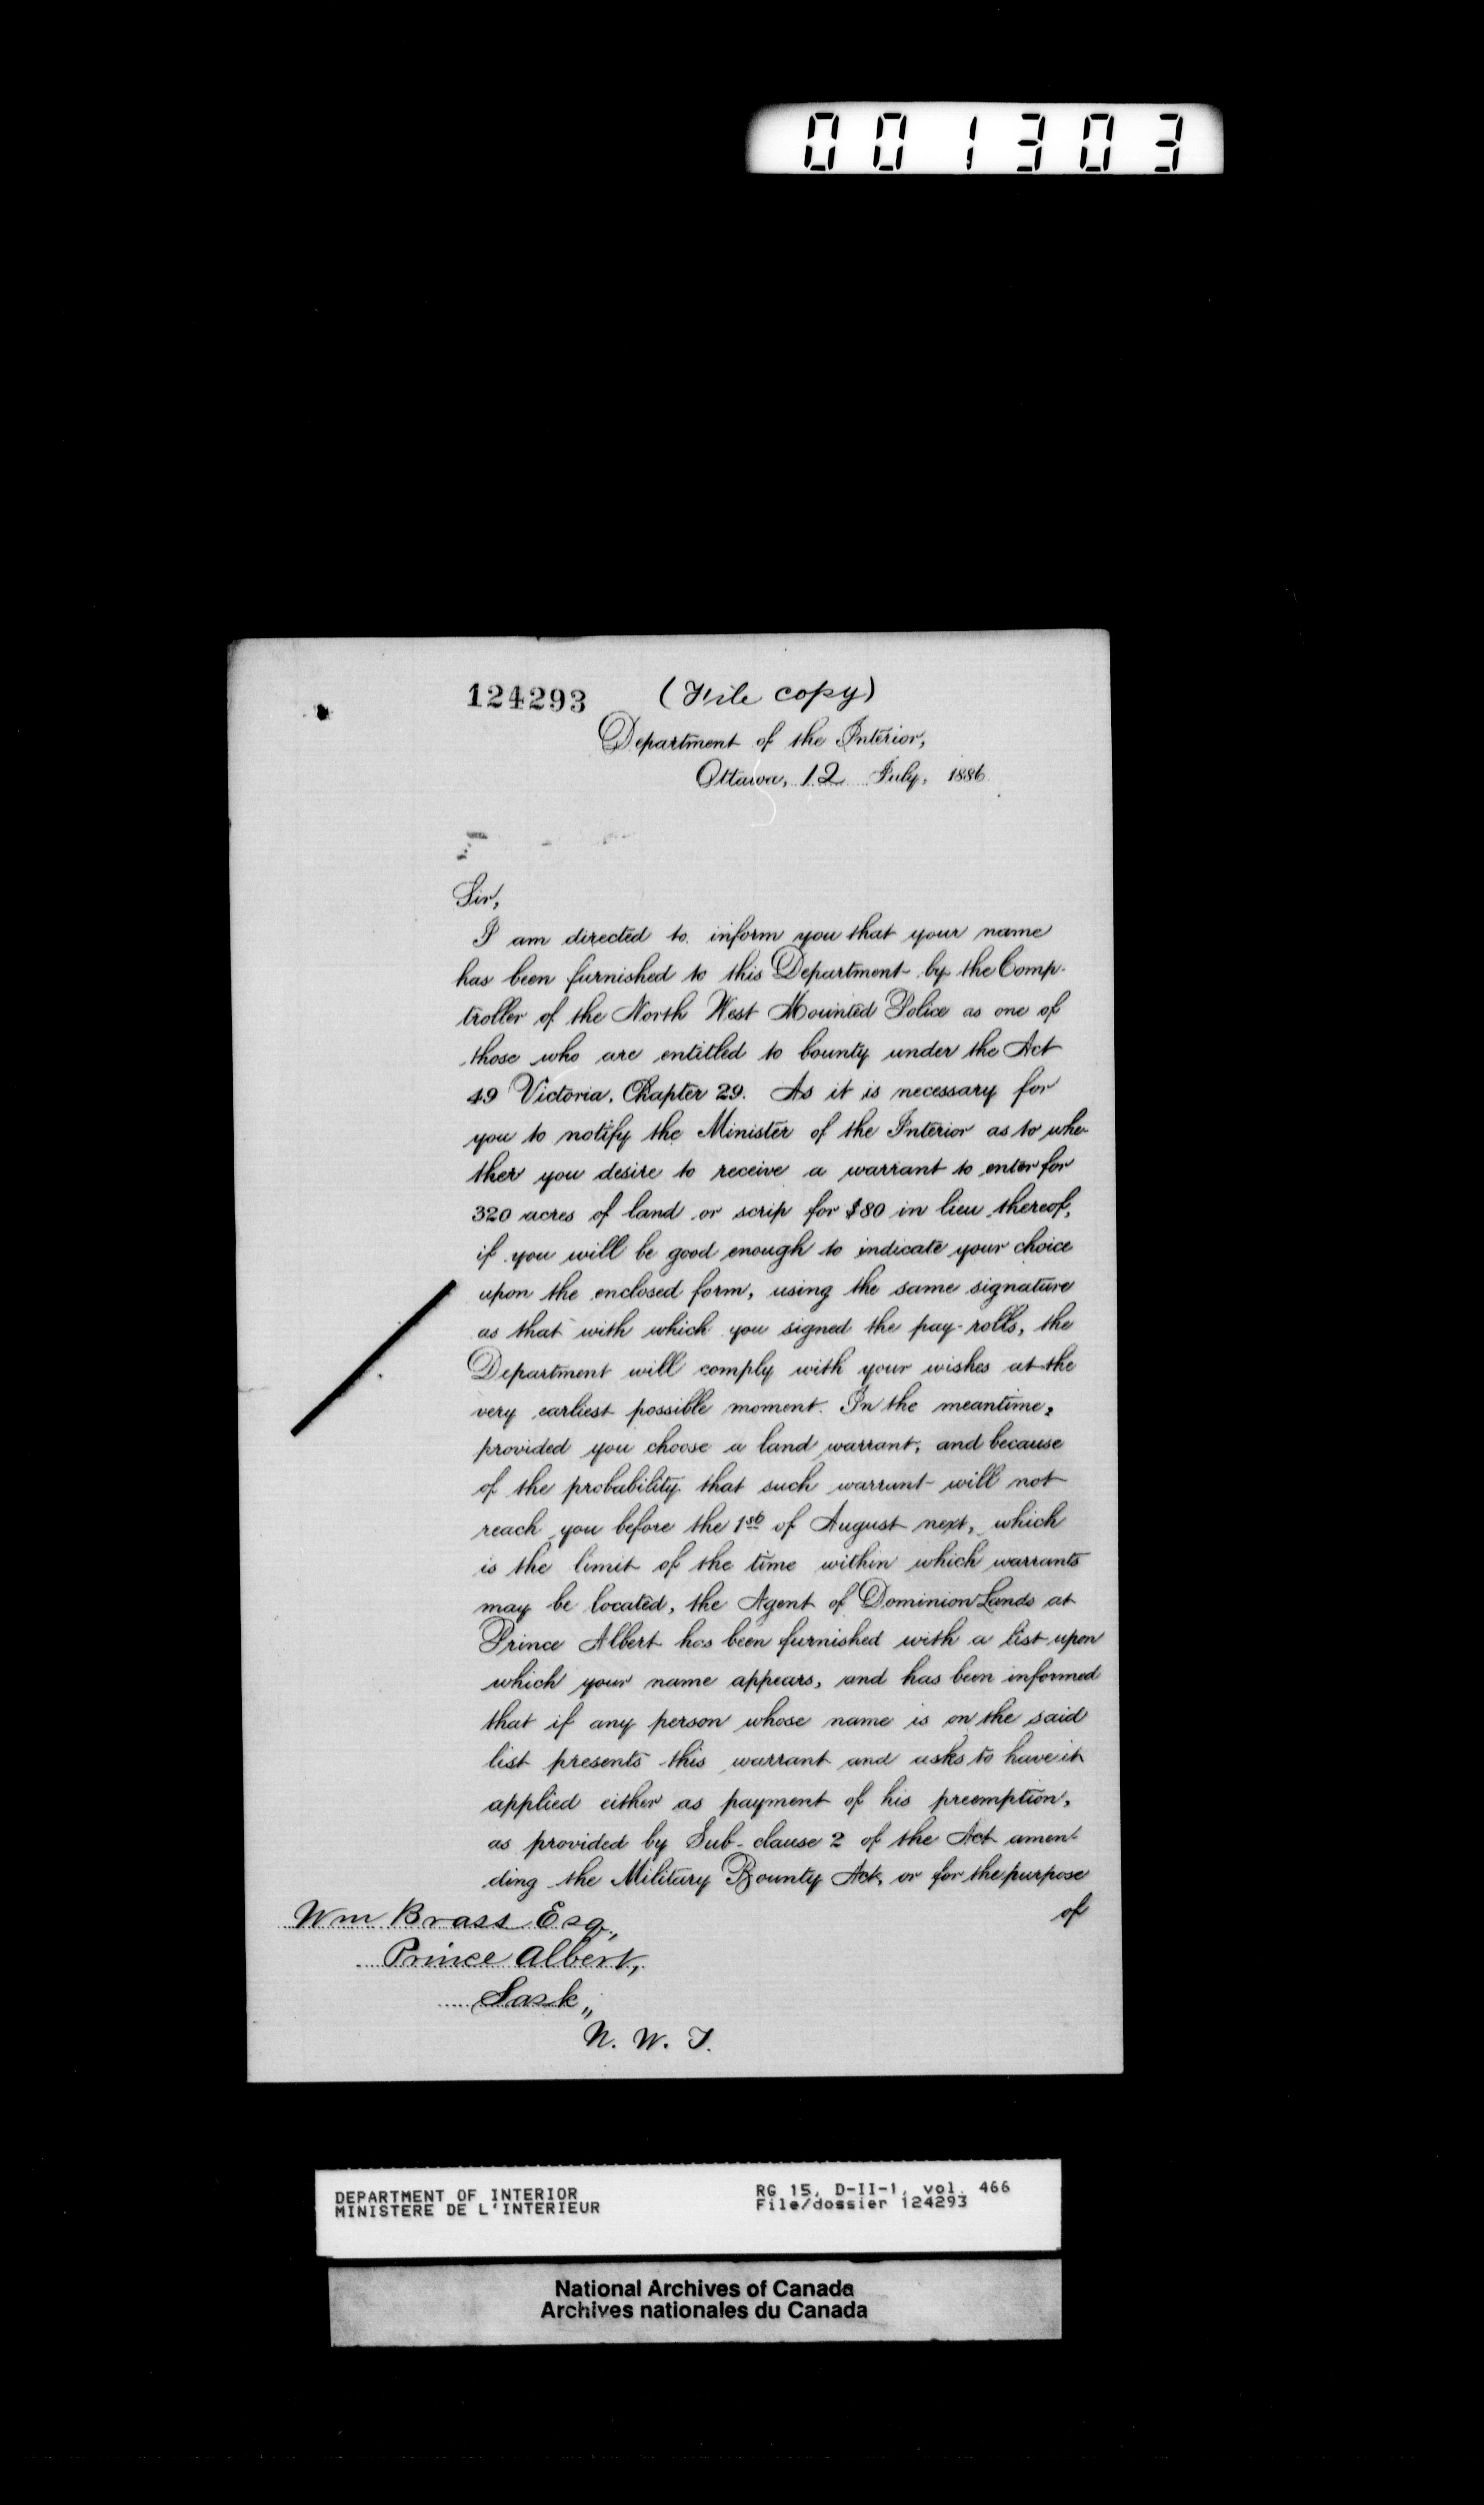 001303
124293 (File copy)
Department of the Interior,
Ottawa, 12 July, 1886
Sir,
I am directed to inform you that your name
has been furnished to this Department by the Comp-
troller of the North West Mounted Police as one of
those who are entitled to bounty under the Act
49 Victoria, Chapter 29. As it is necessary for
you to notify the Minister of the Interior as to whe-
ther you desire to receive a warrant to enter for
320 acres of land or scrip for $80 in lieu thereof,
if you will be good enough to indicate your choice
upon the enclosed form, using the same signature
as that with which you signed the pay-rolls, the
Department will comply with your wishes at the
very earliest possible moment. In the meantime,
provided you choose a land warrant, and because
of the probability that such warrant will not
reach you before the 1st of August next, which
is the limit of the time within which warrants
may be located, the Agent of Dominion Lands at
Prince Albert has been furnished with a list upon
which your name appears, and has been informed
that if any person whose name is on the said
list presents this warrant and asks to have it
applied either as payment of his preemption,
as provided by Sub-clause 2 of the Act amen-
ding the Military Bounty Act, or for the purpose
of
Wm Brass Esq.,
Prince Albert,
Sask,,
N. W. T.
DEPARTMENT OF INTERIOR
MINISTERE DE L'INTERIEUR
RG 15, D-II-1, vol. 466
File/dossier 124293
National Archives of Canada
Archives nationales du Canada